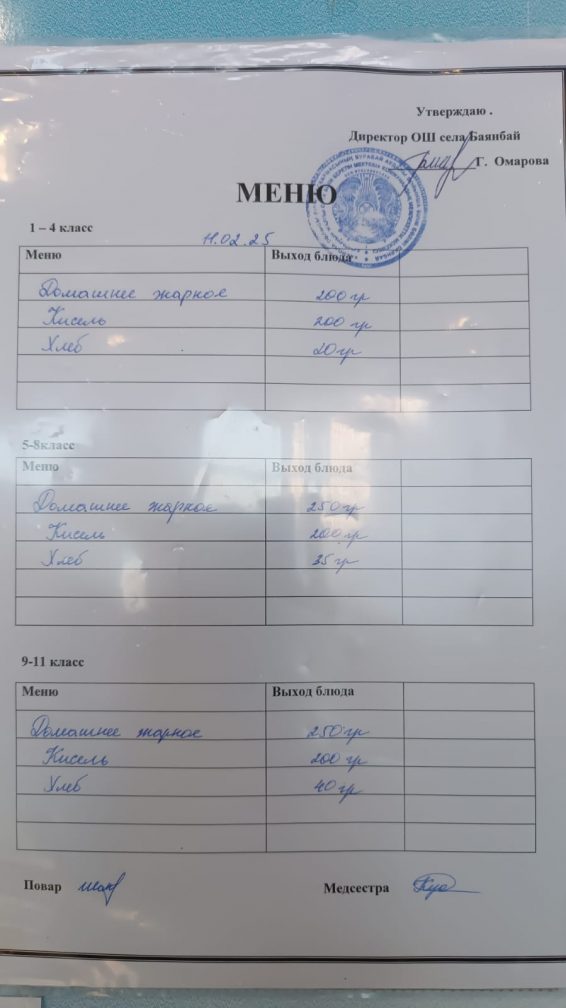 Утверждаю .
Директор ОШ села Баянбай
Г. Омарова
МЕНЮ
1 – 4 класс
11.02.25
Меню Выход блюда
Домашнее жаркое 200 гр
Кисель 200 гр
Хлеб 20 гр
5-8класс
Меню Выход блюда
Домашнее жаркое 250 гр
Кисель 200 гр
Хлеб 35 гр
9-11 класс
Меню Выход блюда
Домашнее жаркое 250 гр
Кисель 200 гр
Хлеб 40 гр
Повар
Медсестра